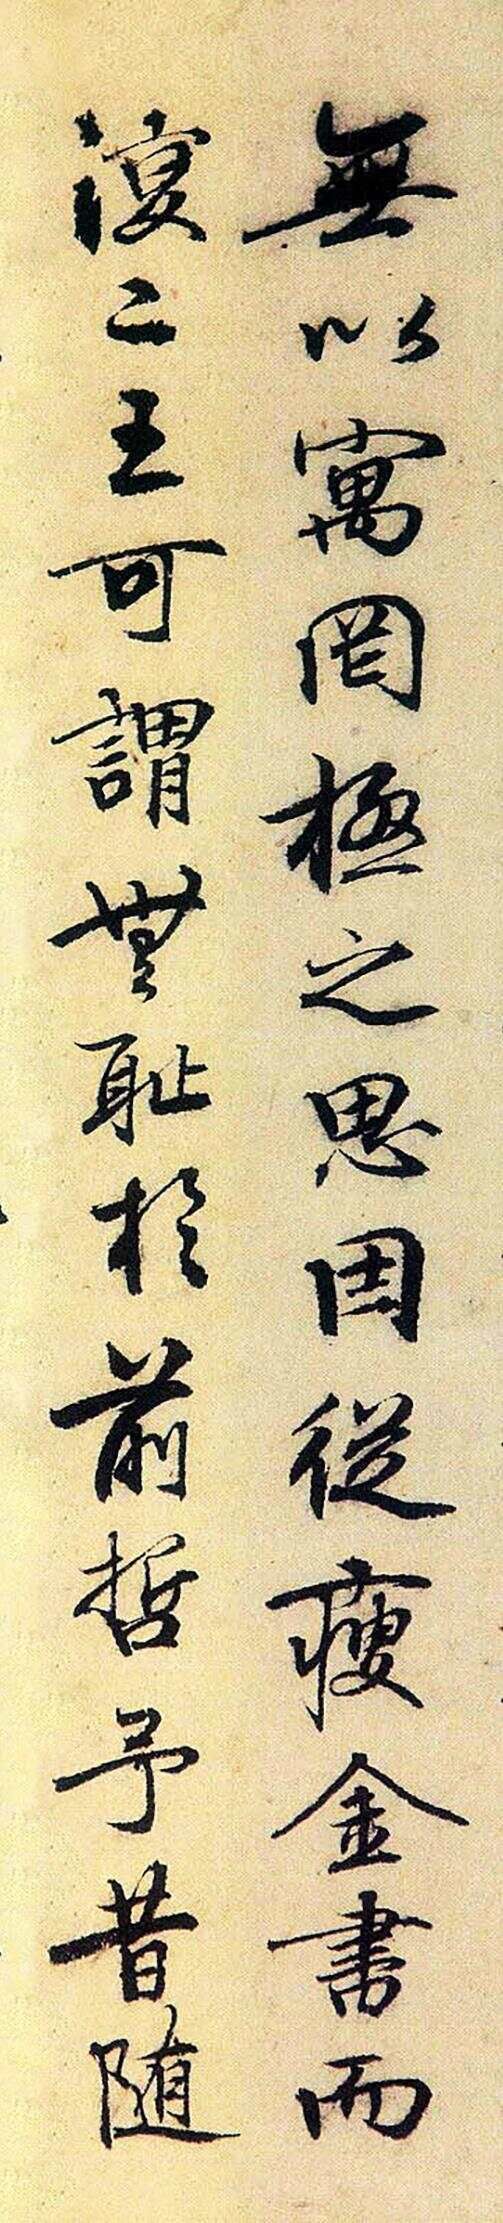 無以寓罔極之思因從瘦金書而
復二王可謂無耻於前哲予昔随